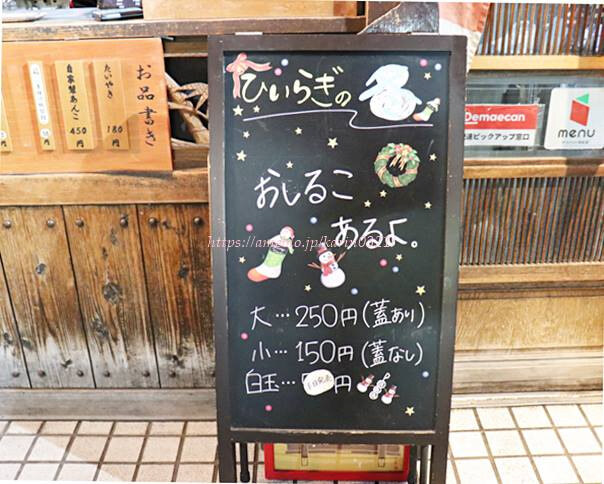 お品書き
たいやき
180
円
自家製あんこ
450
円
ひいらぎの
おしるこ
あるよ。
大…250円(蓋あり)
小…150円(蓋なし)
白玉…
円
Demaecan
ピックアップ窓口
menu